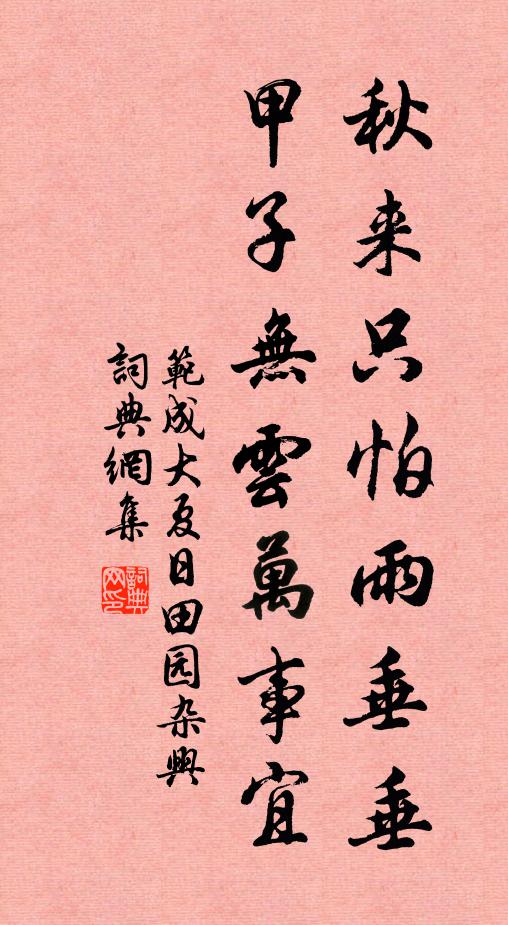 秋来只怕雨垂垂
甲子無雲萬事宜
範成大夏日田园杂興
詞典網集
詞典网印